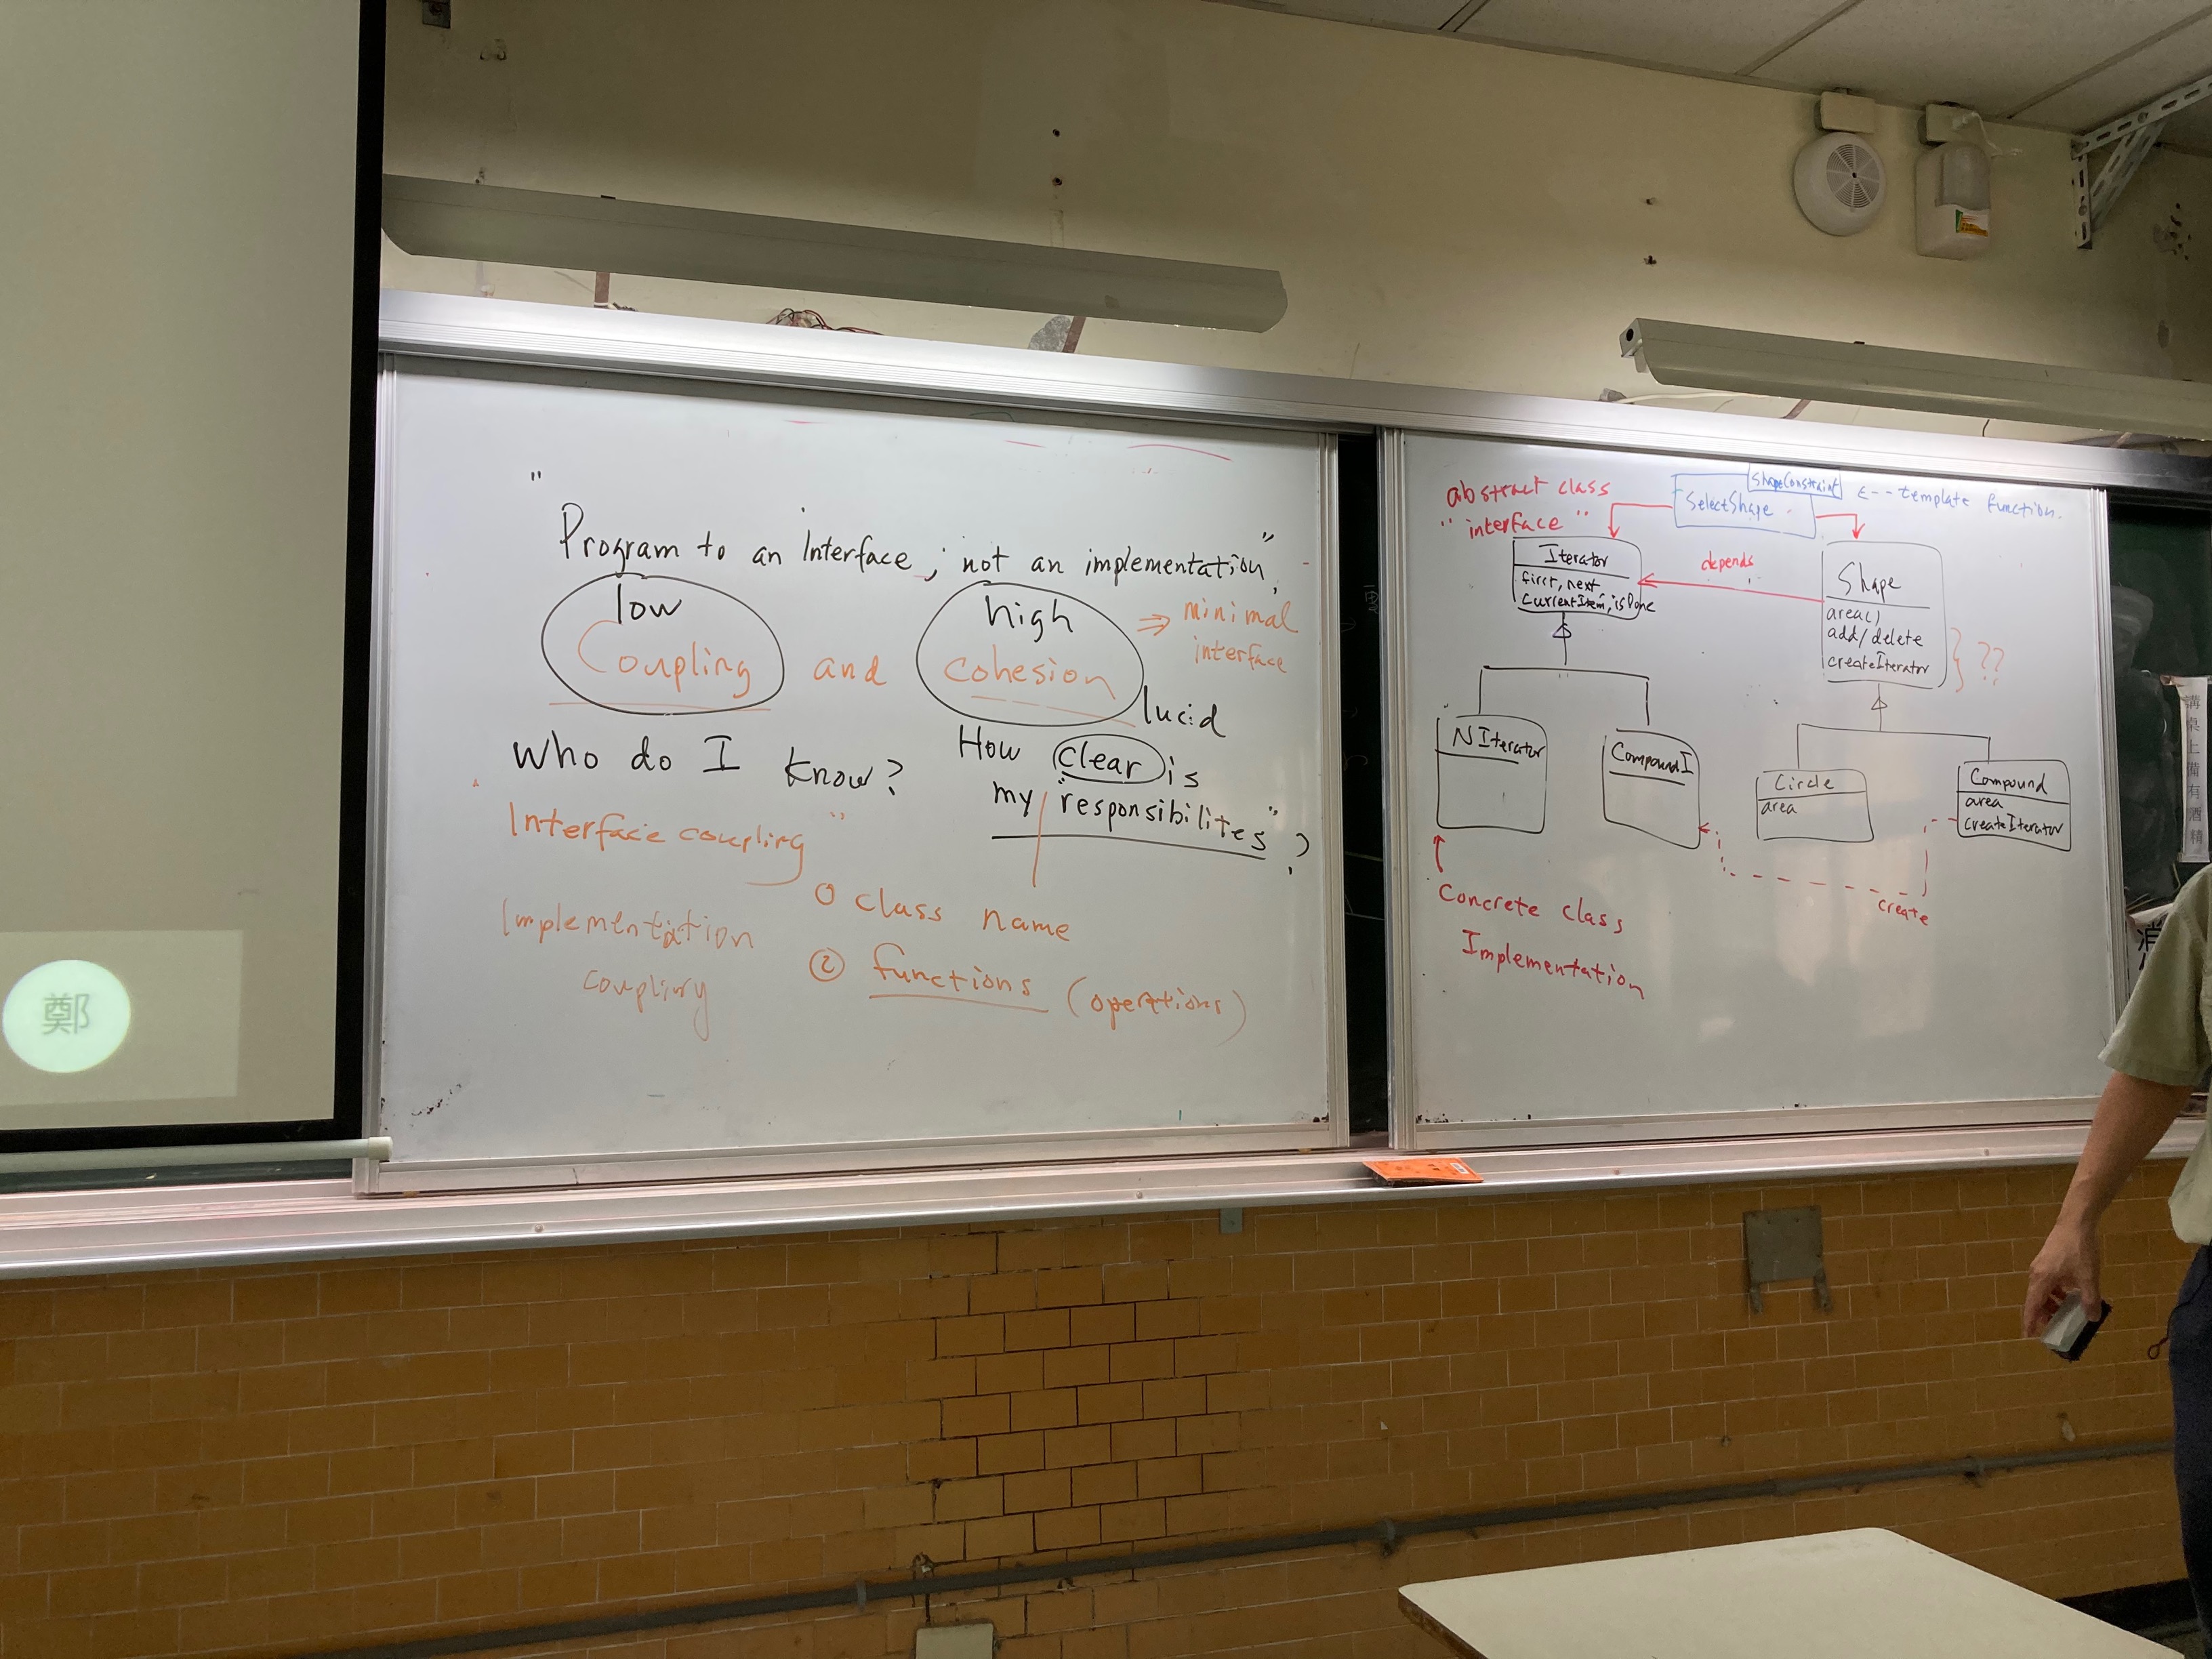 "Program to an Interface, not an implementation"
low
Coupling
and
high
cohesion
⇒ minimal
interface
lucid
Who do I know?
How clear is
my "responsibilites"?
Interface coupling
Implementation
coupling
① class name
② functions (operations)
abstract class
"interface"
ShapeConstraint
SelectShape
<-- template function.
Iterator
first, next,
currentItem, isDone
depends
Shape
area()
add/delete
createIterator
} ??
NIterator
CompoundI
Circle
area
Compound
area
createIterator
create
Concrete class
Implementation
鄭
講桌上備有酒精